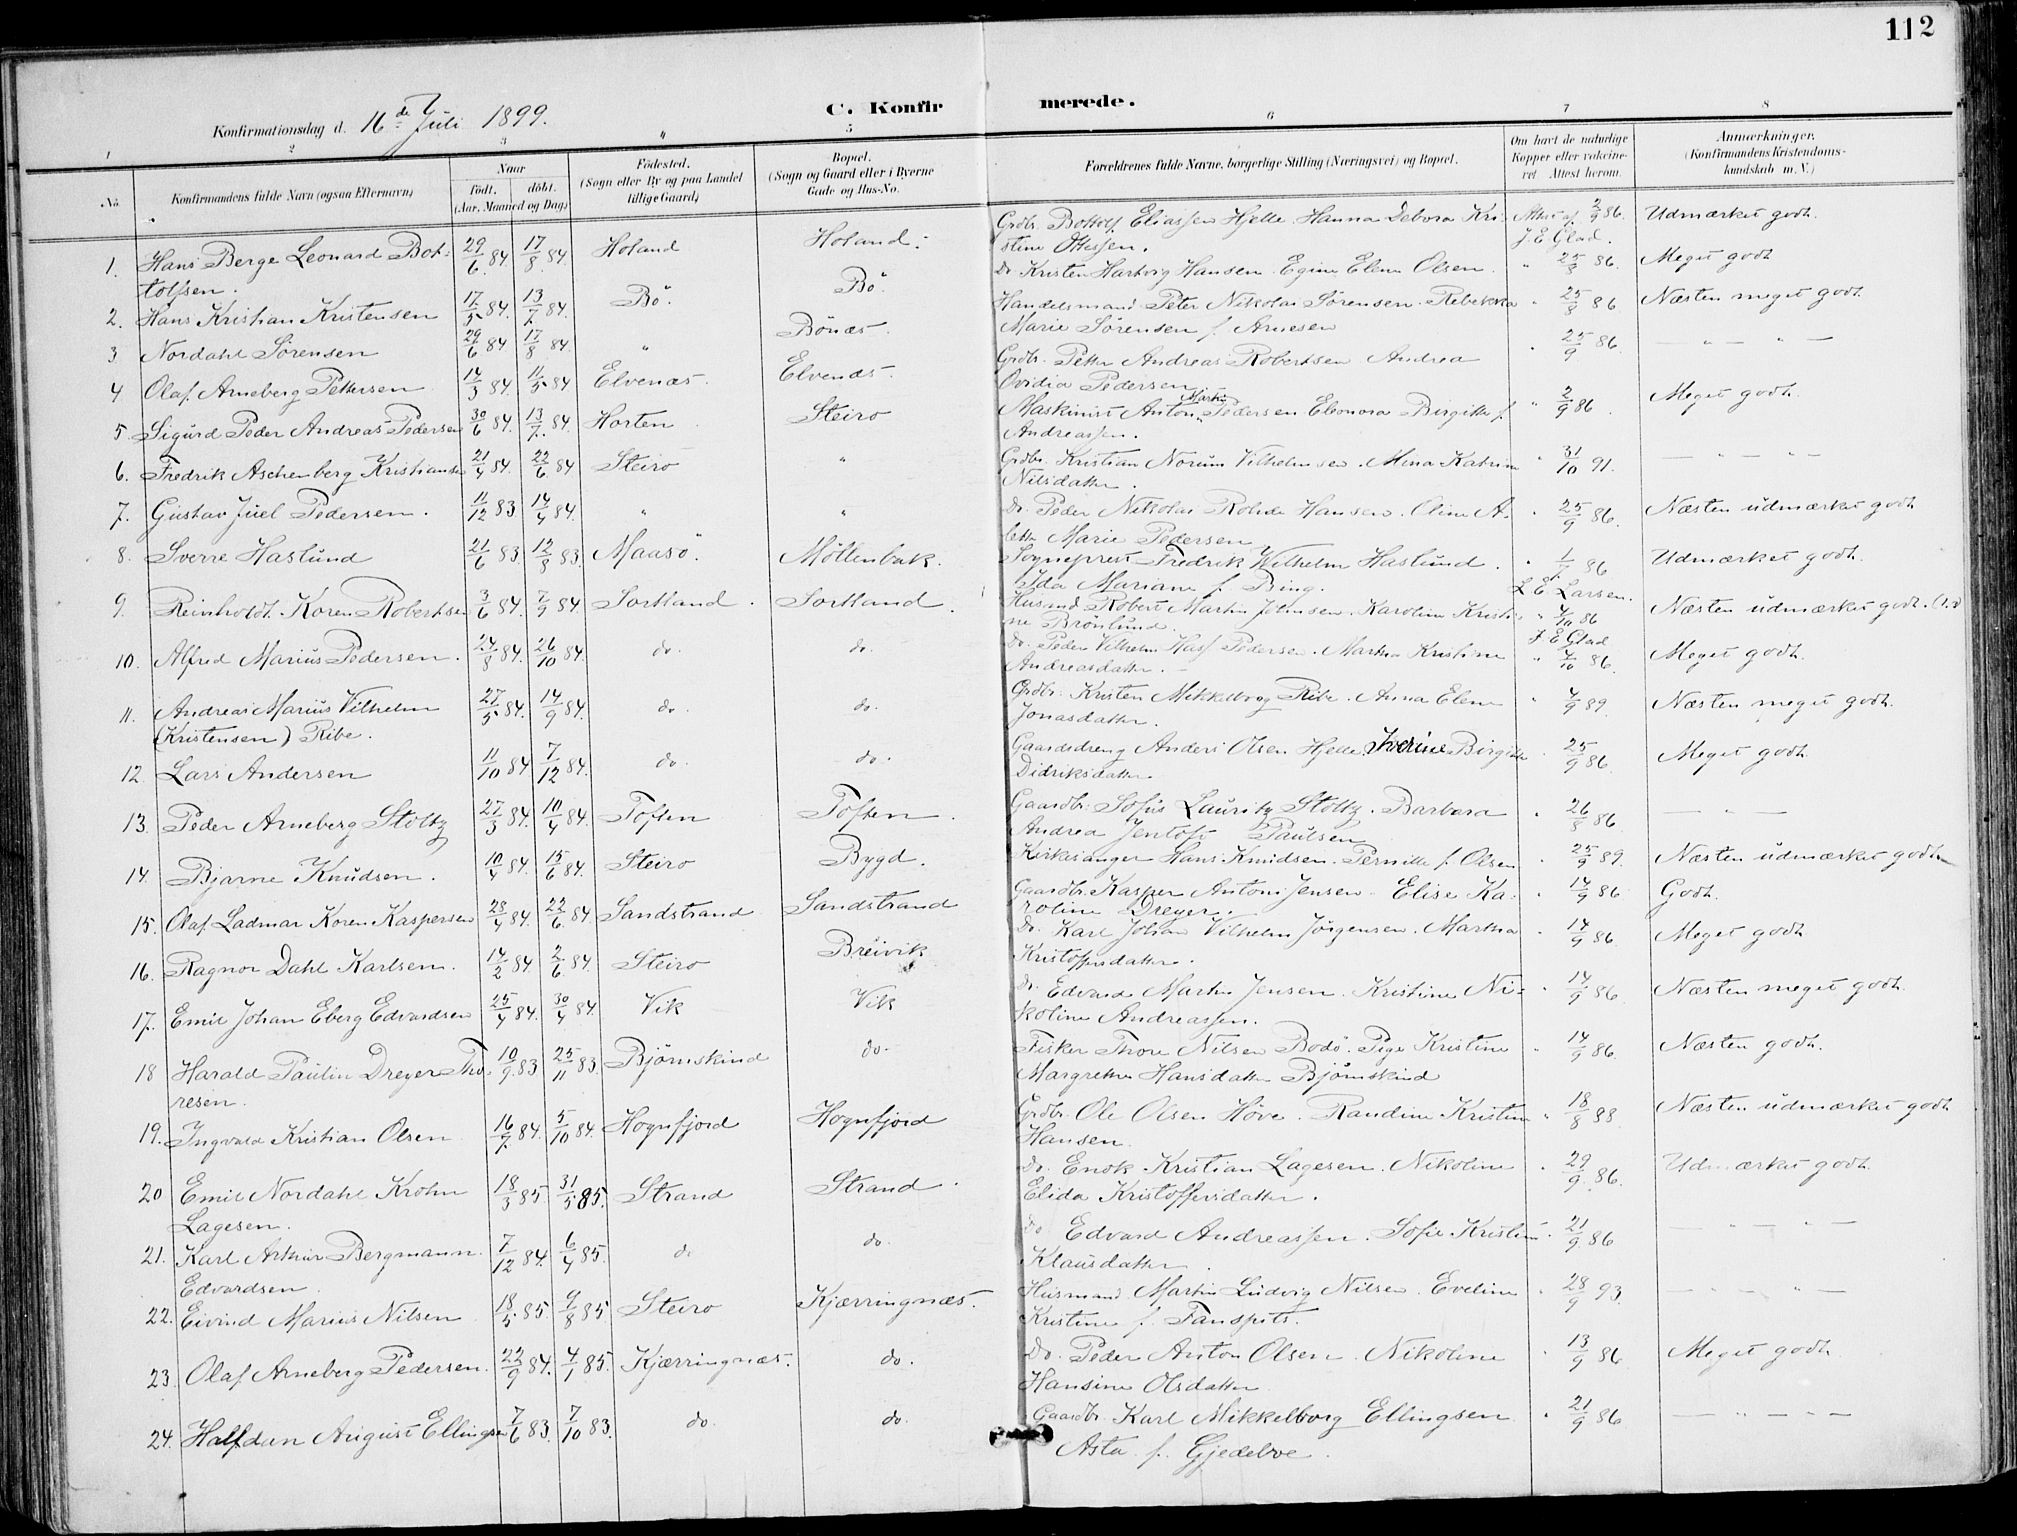 112
Konfirmationsdag d. 16de Juli 1899.
C. Konfirmerede.
1 2 3 4 5 6 7 8
No. Konfirmandens fulde Navn (ogsaa Efternavn) Naar födt. döbt. (Aar, Maaned og Dag) Födested. (Sogn eller By og paa Landet tillige Gaard) Bopæl. (Sogn og Gaard eller i Byerne Gade og Hus-No. Forældrenes fulde Navne, borgerlige Stilling (Næringsvei) og Bopæl. Om havt de naturlige Kopper eller vakcineret Attest herom. Anmærkninger. (Konfirmandens Kristendomskundskab m. V.)
1. Hans Berge Leonard Bot- 29/6 84. 17/8 84. Holand Holand. Grdbr. Bottolf Eliassen Hjelle. Hanna Debora Kri- Attest af 2/9 86. Udmærket godt.
tolfsen. stine Ottessen. J E Glad.
2. Hans Kristian Kristensen 17/5 84. 13/7 84. Bö. Bö. do. Kristen Hartvig Hansen. Egine Elene Olsen. " 25/8 86. Meget godt
3 Nordahl Sörensen 29/6 84 17/8 84. " Bönæs. Handelsmand Peter Nikolai Sörensen. Rebekka " 25/8 86 Næsten meget godt.
Marie Sörensen f. Arnesen
4 Olaf Arneberg Pettersen 14/3 84. 11/5 84 Elvenæs. Elvenæs. Grdbr. Petter Andreas Robertsen Andrea " 25/9 86. — " — " —
Ovidia Pedersen
5. Sigurd Peder Andreas Pedersen 30/6 84. 13/7. 84. Horten Steiro Maskinist Anton Martin Pedersen Eleonora Birgitte f. " 2/9 86. Meget godt.
Andreassen.
6. Fredrik Aschenberg Kristiansen 21/4 84. 22/6 84 Steiro " Grdbr. Kristian Norum Vilhelmsen. Mina Katrine " 31/10 91. — " — " —
Nilsdatter.
7. Gustav Juel Pedersen. 11/12 83 14/4 84. " " do. Peder Nikolai Rohde Hansen. Oline A- " 25/9 86. Næsten udmærket godt
lette Marie Pedersen
8. Sverre Haslund 21/6 83. 12/8 83 Maasö. Möllenbak. Sogneprest Fredrik Wilhelm Haslund. " 1/7 86 Udmærket godt.
Ida Mariane f. Bing. L E Larsen.
9. Reinholdt Koren Robertsen 3/6 84. 7/9 84 Sortland. Sortland. Husmd Robert Martin Johnsen. Karoline Kristi- " 4/10 86 Næsten udmærket godt.
ne Brönlund. J E Glad
10. Alfred Marius Pedersen. 24/8 84. 26/10 84. do. do. do. Peder Vilhelm Hass Pedersen. Martha Kristine " 4/10 86. Meget godt.
Andreasdatter.
11. Andreas Marius Vilhelm 27/5 84. 14/9 84. do. do. Grdbr. Kristen Mikkelborg Ribe. Anna Elene " 4/9 89. Næsten meget godt.
(Kristensen) Ribe. Jonasdatter.
12. Lars Andersen 11/10 84 7/12 84. do. do. Gaardsdreng Anders Olsen Hjelle, Iverine Birgitte " 25/9 86. Meget godt
Didriksdatter
13. Peder Arneberg Stoltz 27/3 84. 10/4 84. Toften Toften. Gaardbr. Sofus Lauritz Stoltz. Barbara " 26/8 86 — " —
Andrea Jentoft Paulsen
14. Bjarne Knudsen. 10/4 84. 15/6 84. Steiro Bygd. Kirkesanger Hans Knudsen. Pernille f. Olsen " 25/9 89. Næsten udmærket godt
15. Olaf Ladmar Koren Kaspersen 28/4 84. 22/6 84. Sandstrand Sandstrand Gaardbr. Kasper Antoni Jensen. Elise Ka- " 14/9 86 Godt.
roline Dreyer.
16. Ragnor Dahl Karlsen. 14/2 84. 2/6 84. Steiro Breivik do. Karl Johan Vilhelm Jörgensen. Martha " 14/9 86. Meget godt
Kristoffersdatter.
17. Emil Johan Eberg Edvardsen 25/4 84. 30/4 84. Vik Vik do. Edvard Martin Jensen. Kristine Ni- " 14/9 86. Næsten meget godt.
koline Andreassen.
18 Harald Paulin Dreyer Tho- 10/9 83 25/11 83. Björnskind do. Fisker Thore Nilsen Bodö. Pige Kristine " 14/9 86. Næsten godt.
resen. Margrethe Hansdatter Björnskind
19. Ingvald Kristian Olsen 16/7. 84. 5/10 84. Hognfjord Hognfjord Grdbr. Ole Olsen Höve. Randine Kristine " 18/8 88. Næsten udmærket godt
Hansen.
20 Emil Nordahl Krohn 18/3 85 31/5 85. Strand Strand. do. Enok Kristian Lagesen. Nikoline " 29/9 86. Udmærket godt.
Lagesen. Elida Kristoffersdatter.
21. Karl Arthur Bergmann 7/12 84. 6/4 85. do do. do Edvard Andreassen. Sofie Kristine " 21/9 86 — " — " —
Edvardsen Klausdatter.
22. Eivind Marius Nilsen 18/5 85. 9/8 85 Steiro Kjærringnæs. Husmand Martin Ludvig Nilsen. Eveline " 28/9 93. — " — " —
Kristine f. Fanspits.
23. Olaf Arneberg Pedersen. 22/9 84. 4/1 85. Kjærringnæs. do. do. Peder Anton Olsen. Nikoline " 13/9 86 Meget godt.
Hansine Olsdatter
24. Halfdan August Ellingsen 7/6 83. 7/10 83. do. do. Gaardbr. Karl Mikkelborg Ellingsen " 21/9 86 — " — " —
Asta f. Gjedeboe.